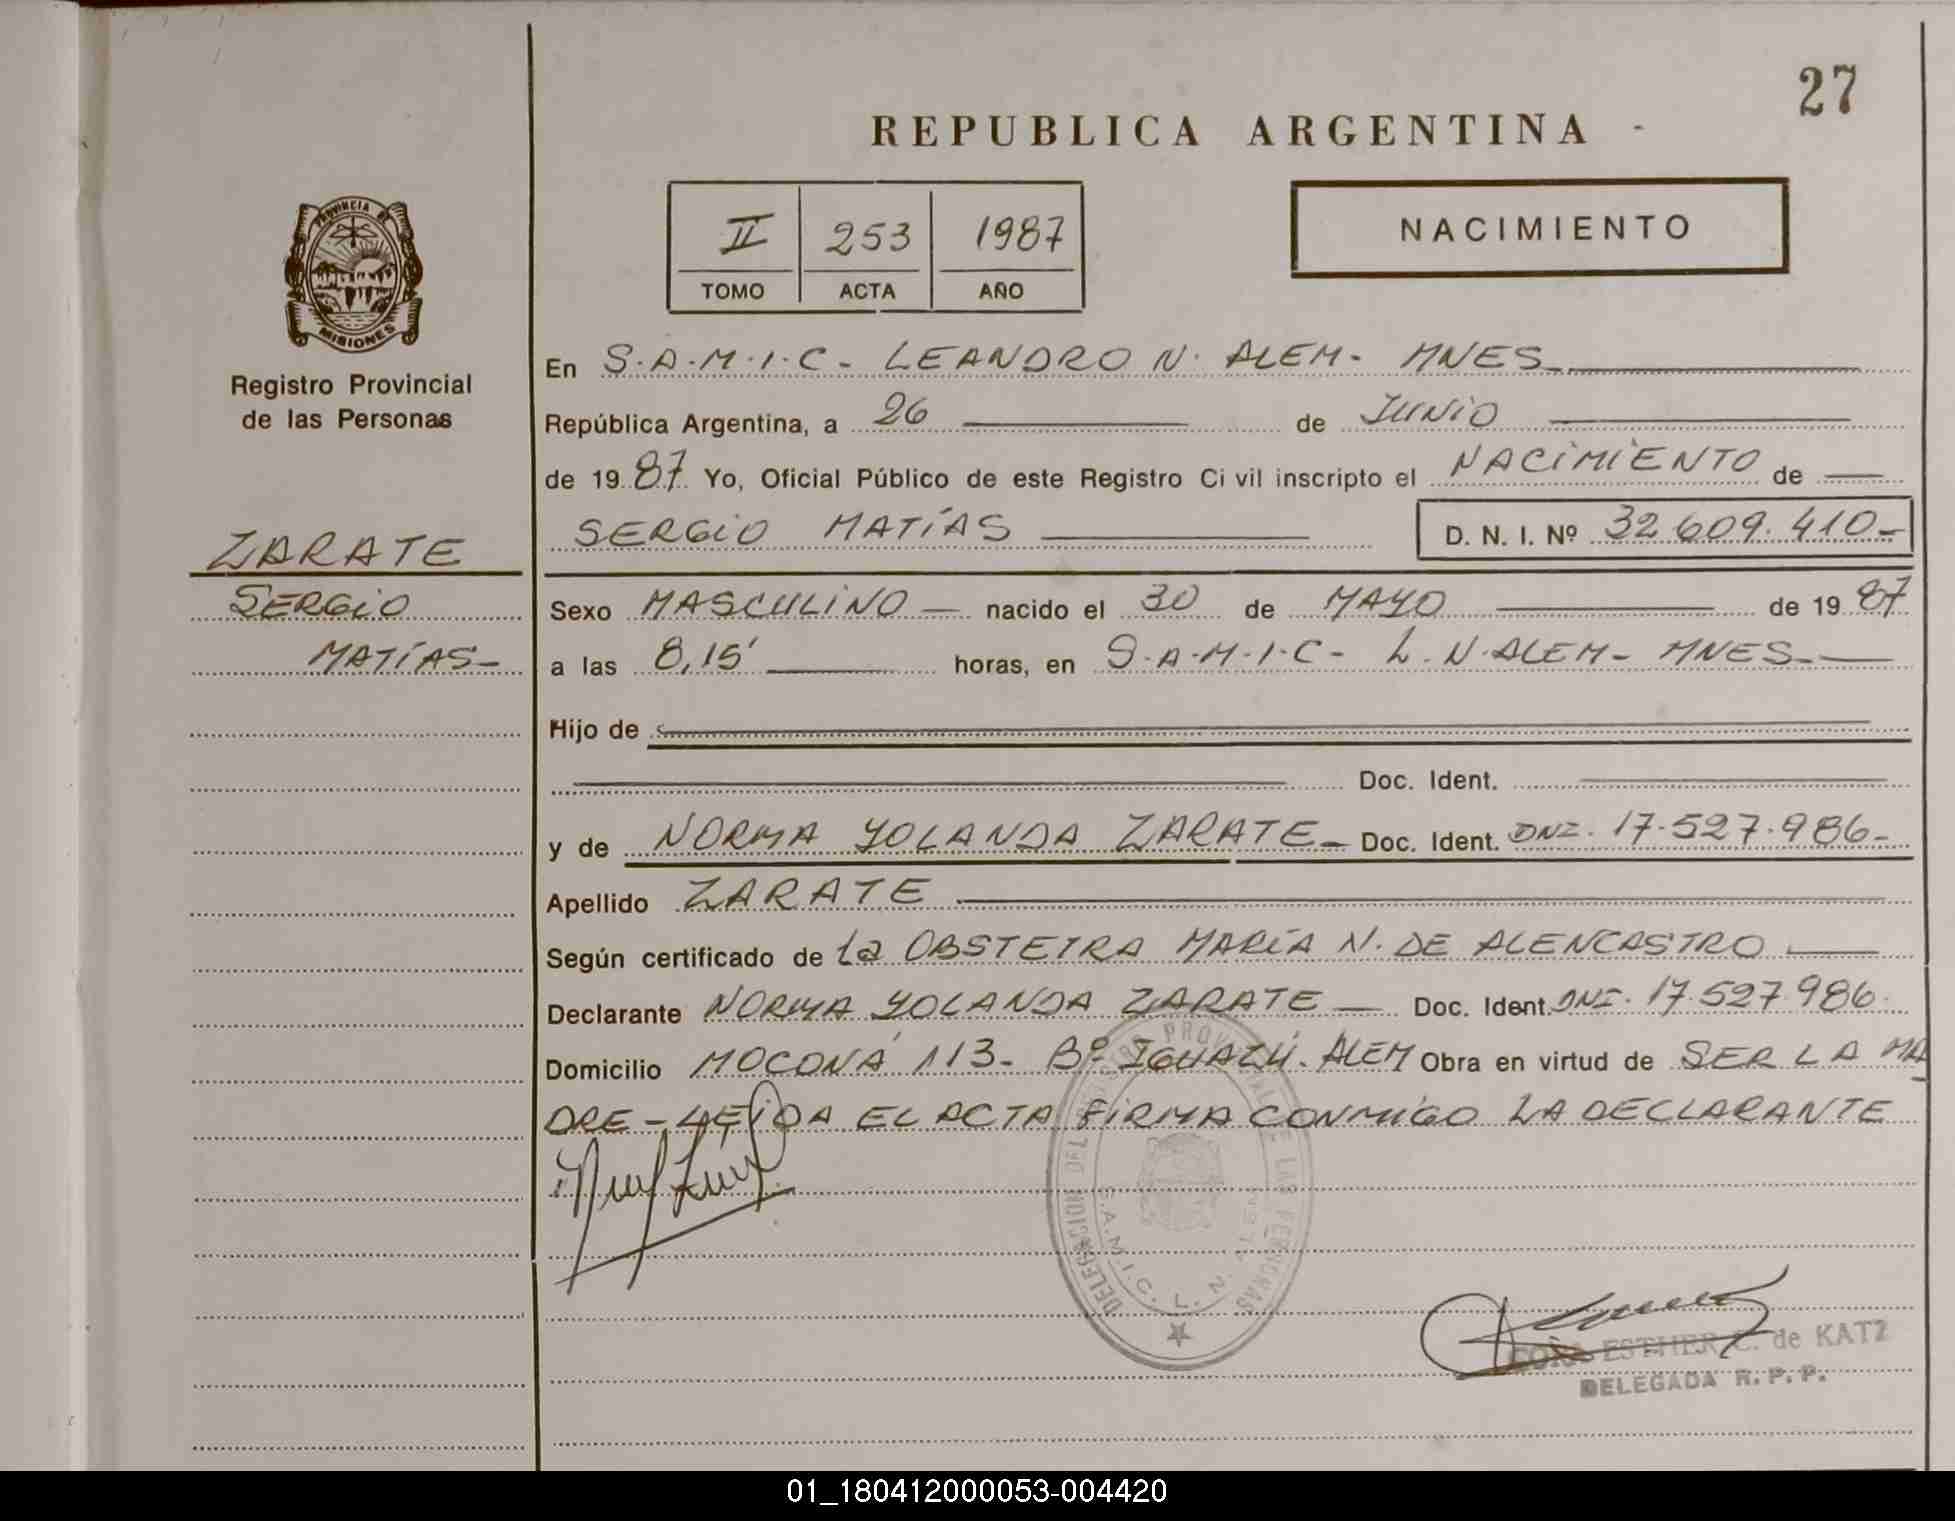 27
REPUBLICA ARGENTINA
II 253 1987
TOMO ACTA AÑO
NACIMIENTO
PROVINCIA DE
MISIONES
Registro Provincial
de las Personas
ZARATE
SERGIO
MATÍAS
En S.A.M.I.C - LEANDRO N. ALEM - MNES
República Argentina, a 26 de JUNIO
de 19 87 Yo, Oficial Público de este Registro Civil inscripto el NACIMIENTO de
SERGIO MATÍAS D. N. I. Nº 32.609.410-
Sexo MASCULINO nacido el 30 de MAYO de 19 87
a las 8,15' horas, en S.A.M.I.C - L.N. ALEM - MNES-
Hijo de
Doc. Ident.
y de NORMA YOLANDA ZARATE- Doc. Ident. DNI. 17.527.986-
Apellido ZARATE
Según certificado de La OBSTETRA MARÍA N. DE ALENCASTRO
Declarante NORMA YOLANDA ZARATE Doc. Ident. DNI. 17.527.986.
Domicilio MOCONÁ 113- Bº IGUAZÚ. ALEM Obra en virtud de SER LA MA
DRE - LEIDA EL ACTA FIRMA CONMIGO LA DECLARANTE
DELEGACION DEL REGISTRO PROVINCIAL DE LAS PERSONAS
S.A.M.I.C. L. N. ALEM
ESTHER C. de KATZ
DELEGADA R. P. P.
01_180412000053-004420